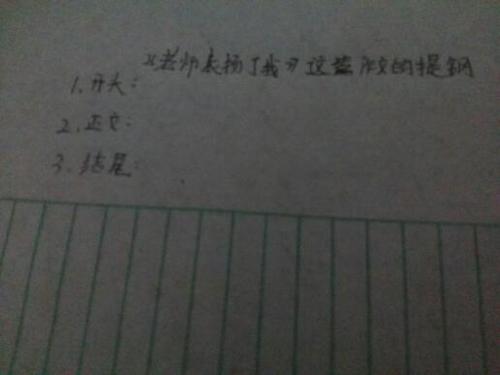 《老师表扬了我》这篇作文的提钢
1.开头:
2.正文:
3.结尾: